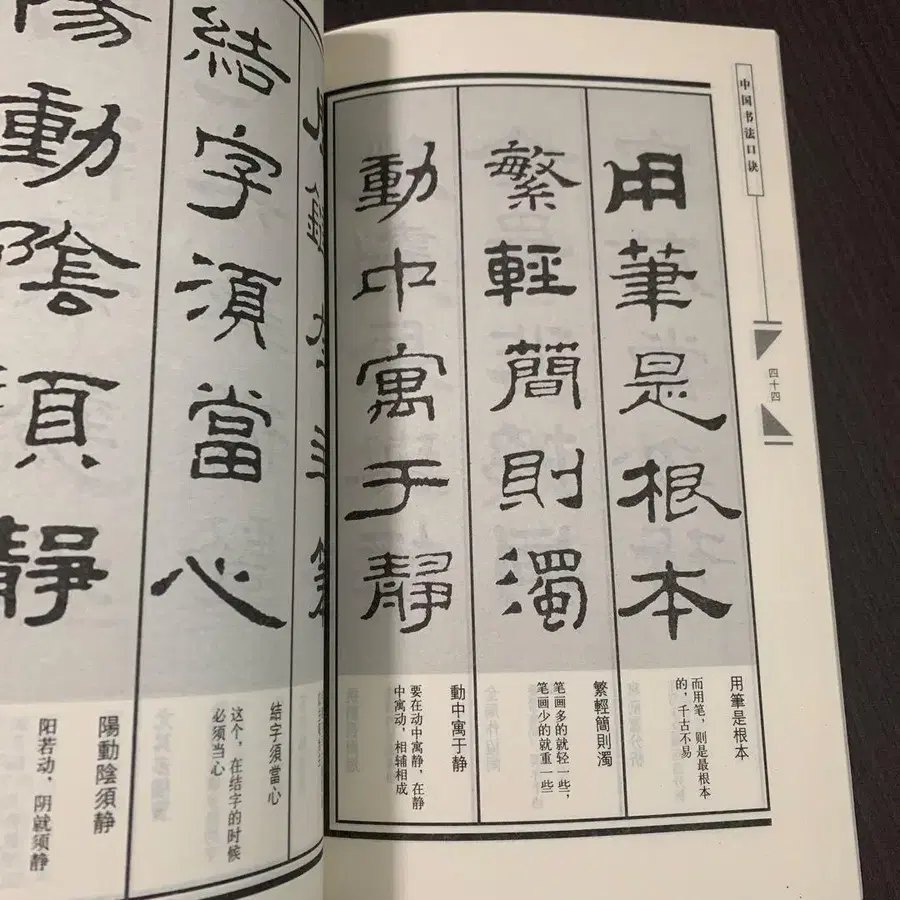 中国书法口诀
四十四
用筆是根本
用筆是根本
而用笔，则是最根本
的，千古不易
繁輕簡則濁
繁輕簡則濁
笔画多的就轻一些，
笔画少的就重一些
動中寓于静
動中寓于静
要在动中寓静，在静
中寓动，相辅相成
結字須當心
結字須當心
这个，在结字的时候
必须当心
陽動陰須静
陽動陰須静
阳若动，阴就须静